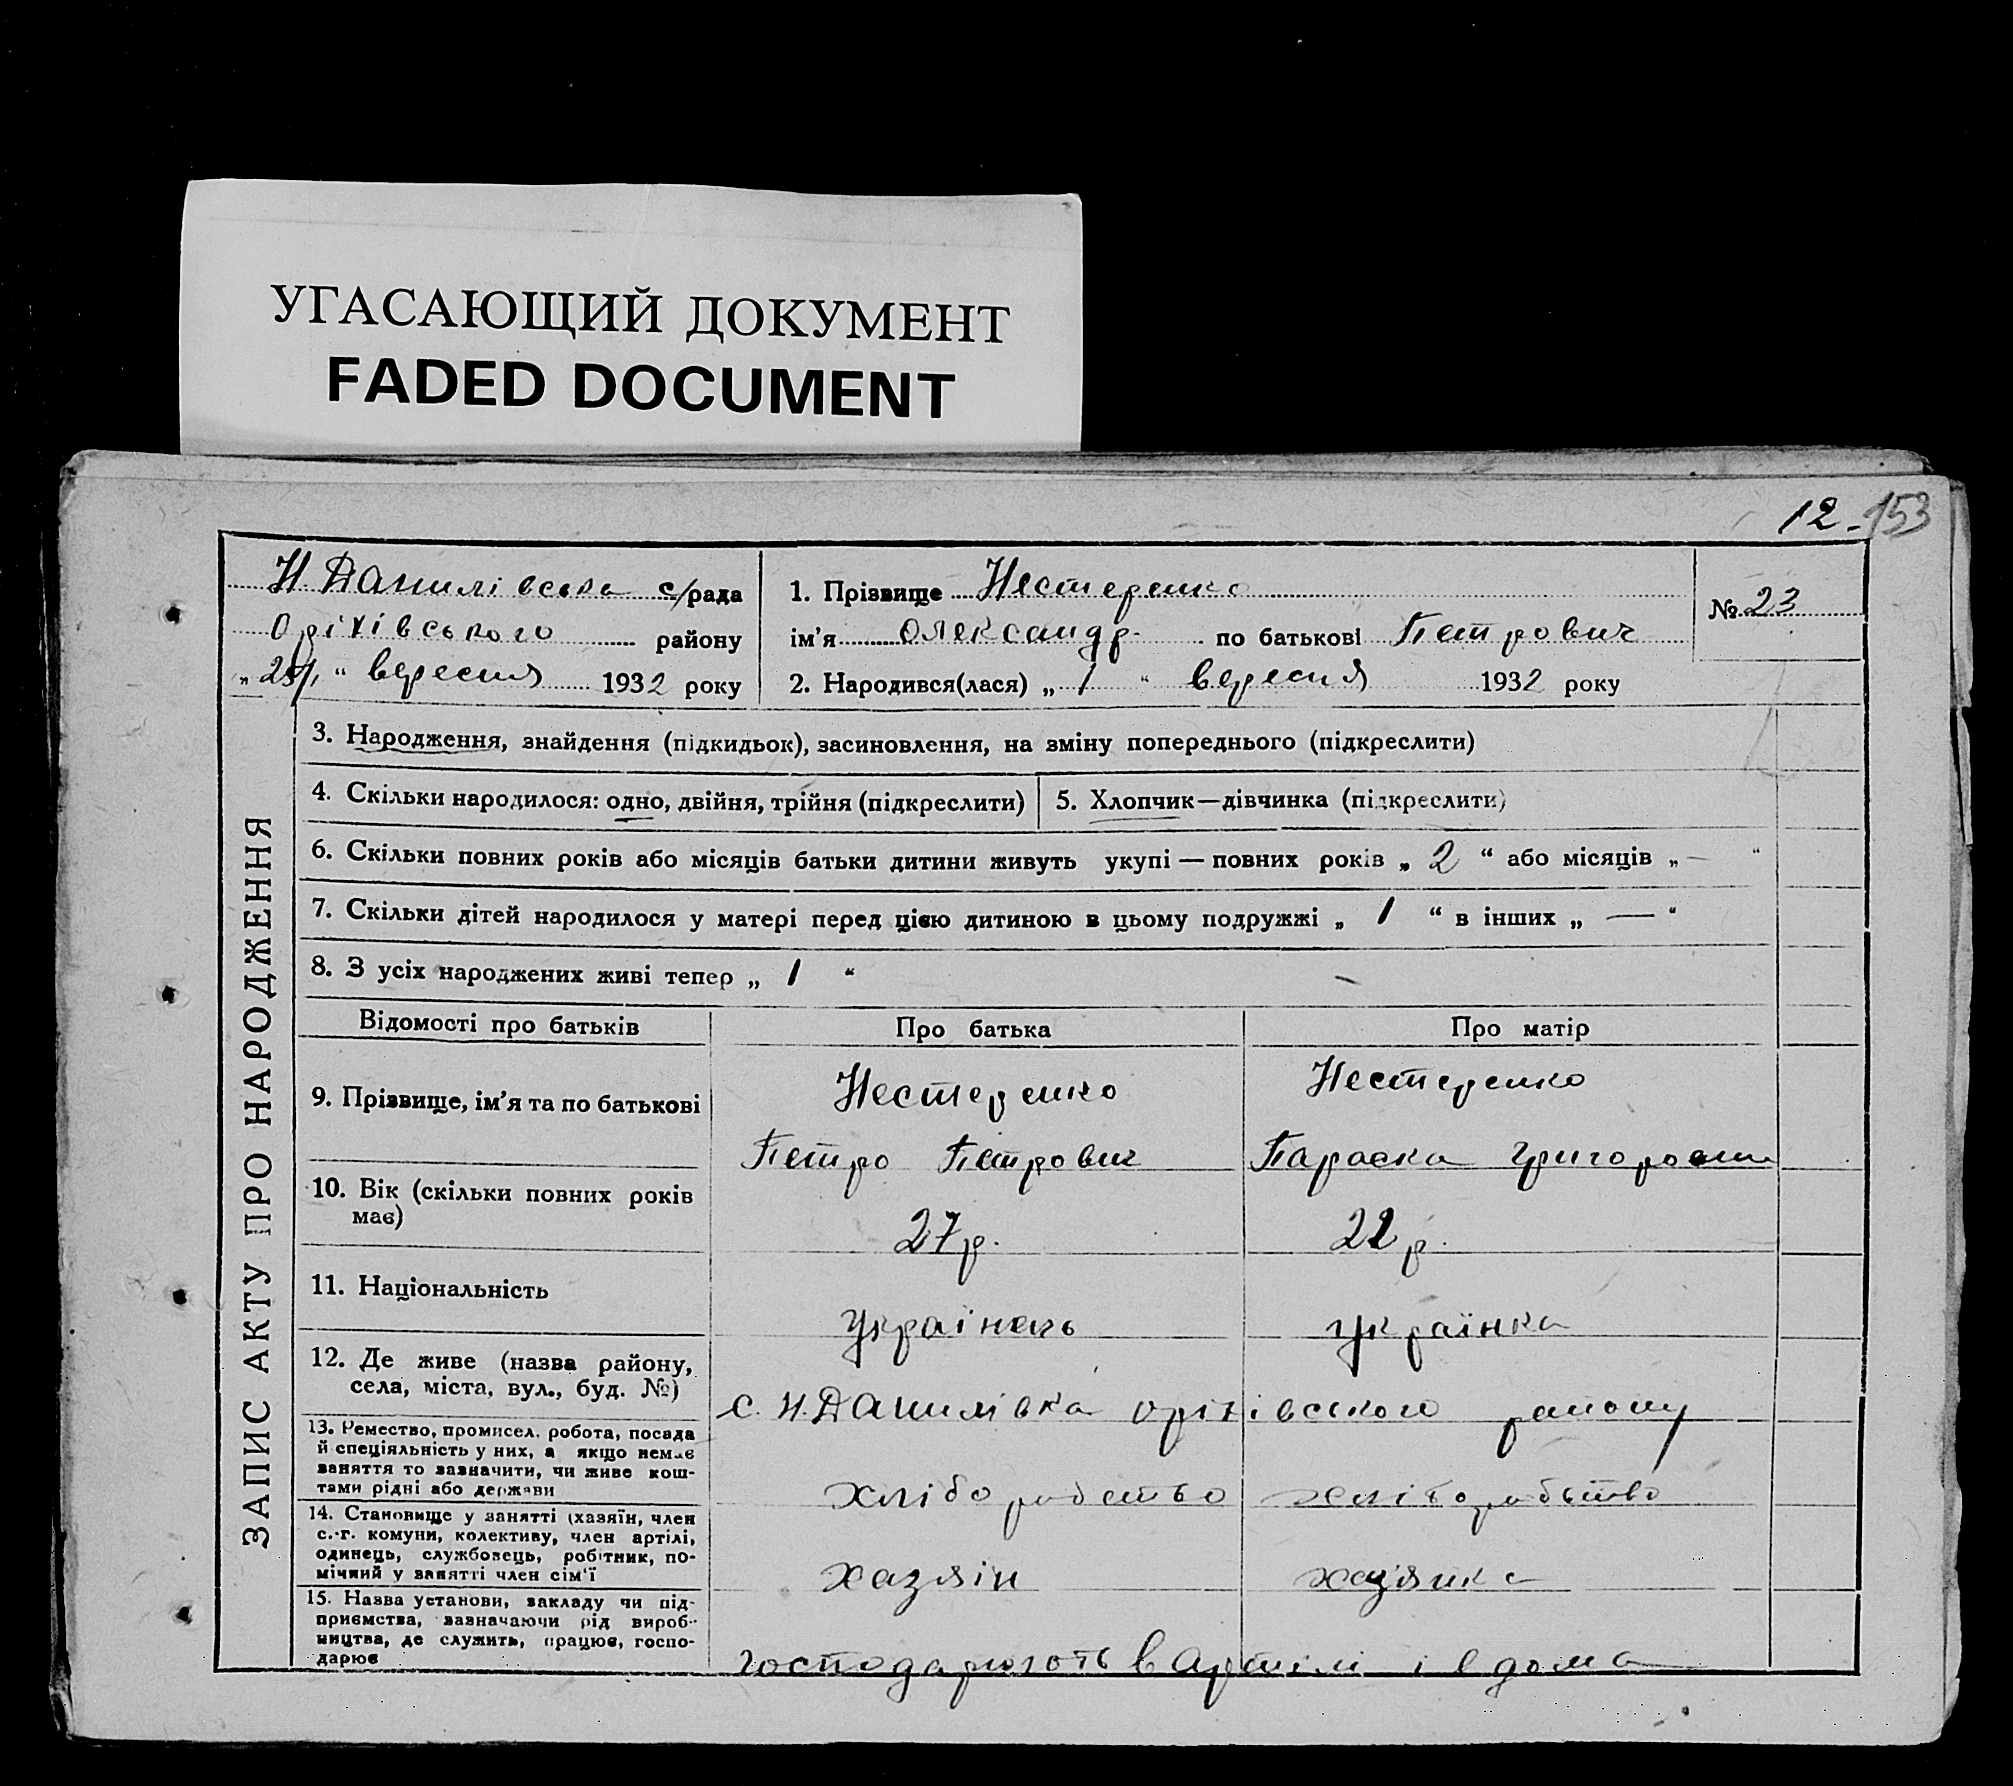 УГАСАЮЩИЙ ДОКУМЕНТ
FADED DOCUMENT
12 - 153
Н Данилівська с/рада
Оріхівського району
„ “ вересня 1932 року
1. Прізвище Нестеренко
ім’я Олександр по батькові Петрович
2. Народився(лася) „ 1 “ вересня 1932 року
№ 23
ЗАПИС АКТУ ПРО НАРОДЖЕННЯ
3. Народження, знайдення (підкидьок), засиновлення, на зміну попереднього (підкреслити)
4. Скільки народилося: одно, двійня, трійня (підкреслити)
5. Хлопчик—дівчинка (підкреслити)
6. Скільки повних років або місяців батьки дитини живуть укупі — повних років „ 2 “ або місяців „ — “
7. Скільки дітей народилося у матері перед цією дитиною в цьому подружжі „ 1 “ в інших „ — “
8. З усіх народжених живі тепер „ 1 “ –
Відомості про батьків
Про батька
Про матір
9. Прізвище, ім’я та по батькові
Нестеренко
Петро Петрович
Нестеренко
Параска
10. Вік (скільки повних років
має)
27 р.
22 р.
11. Національність
українець
українка
12. Де живе (назва району,
села, міста, вул., буд. №)
с. Н. Данилівка оріхівського району
13. Ремество, промисел, робота, посада
й спеціяльність у них, а якщо немає
заняття то зазначити, чи живе кош-
тами рідні або держави
хліборобство
хліборобство
14. Становище у занятті (хазяїн, член
с.-г. комуни, колективу, член артілі,
одинець, службовець, робітник, по-
мічний у занятті член сім’ї
хазяін
хазяика
15. Назва установи, закладу чи під-
приємства, зазначаючи рід вироб-
ництва, де служить, працює, госпо-
дарює
господарюють в артілі і в дома